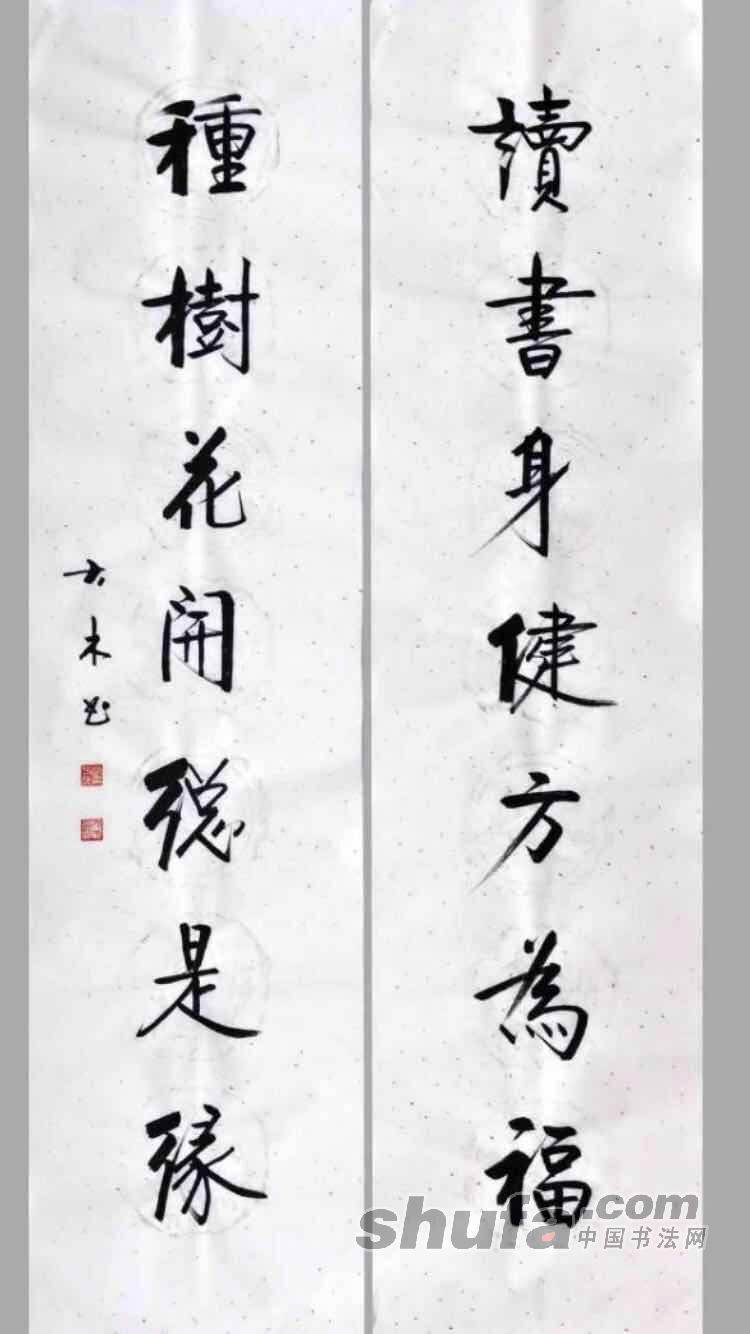 讀書身健方為福
種樹花開總是緣
shufa.com
中国书法网